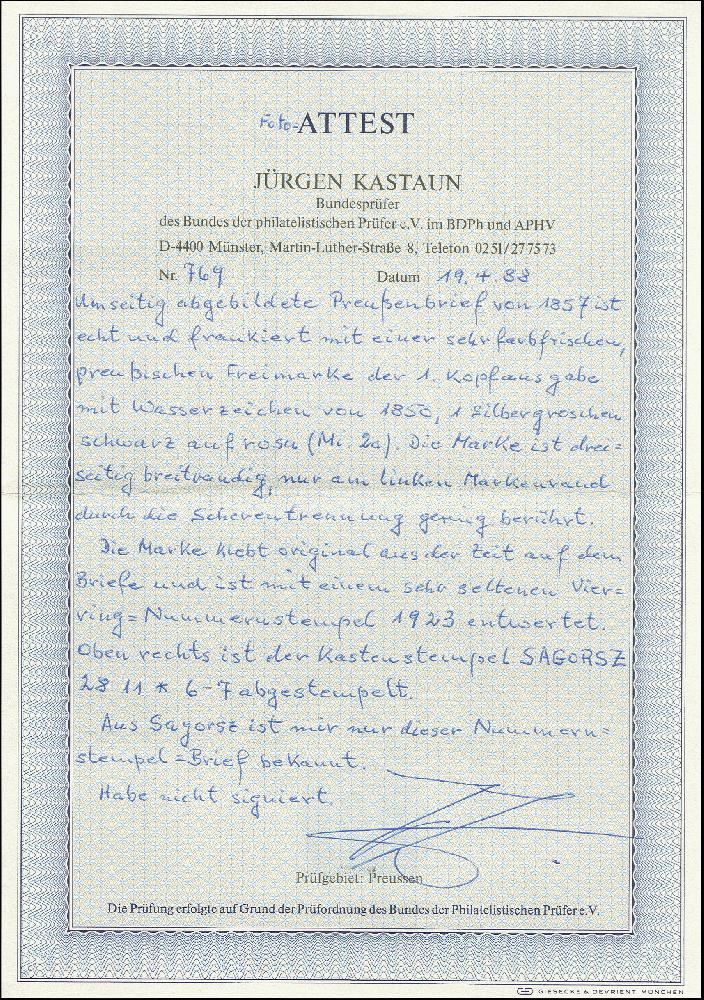 Foto-ATTEST
JÜRGEN KASTAUN
Bundesprüfer
des Bundes der philatelistischen Prüfer e.V. im BDPh und APHV
D-4400 Münster, Martin-Luther-Straße 8, Telefon 0251/277573
Nr. 769 Datum 19.4.88
Umseitig abgebildete Preußenbrief von 1857 ist
echt und frankiert mit einer sehr farbfrischen,
preußischen Freimarke der 1. Kopfausgabe
mit Wasserzeichen von 1850, 1 Silbergroschen
schwarz auf rosa (Mi. 2a). Die Marke ist drei=
seitig breitrandig, nur am linken Markenrand
durch die Scherentrennung gering berührt.
Die Marke klebt original aus der Zeit auf dem
Briefe und ist mit einem sehr seltenen Vier=
ring=Nummernstempel 1923 entwertet.
Oben rechts ist der Kastenstempel SAGORSZ
28 11 * 6-7 abgestempelt.
Aus Sagorsz ist mir nur dieser Nummern=
stempel=Brief bekannt.
Habe nicht signiert.
Prüfgebiet: Preussen
Die Prüfung erfolgte auf Grund der Prüfordnung des Bundes der Philatelistischen Prüfer e.V.
GIESECKE & DEVRIENT MÜNCHEN